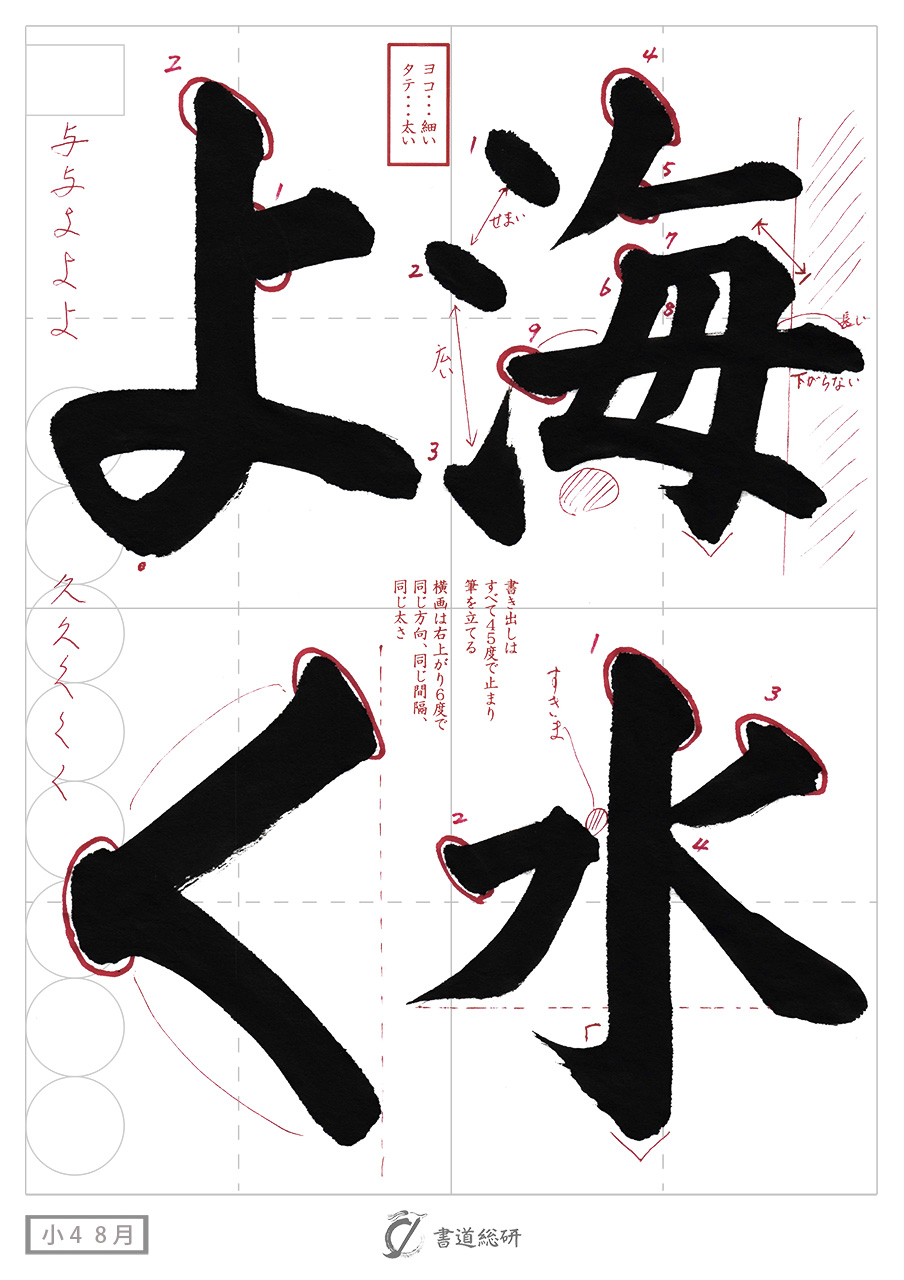 海水
よく
ヨコ・・・細い
タテ・・・太い
4
1
5
せまい
7
2
6
8
長い
9
広い
下がらない
3
2
1
与
与
よ
よ
よ
書き出しは
すべて45度で止まり
筆を立てる
横画は右上がり6度で
同じ方向、同じ間隔、
同じ太さ
1
すきま
3
2
4
久
久
く
く
く
小4 8月
書道総研